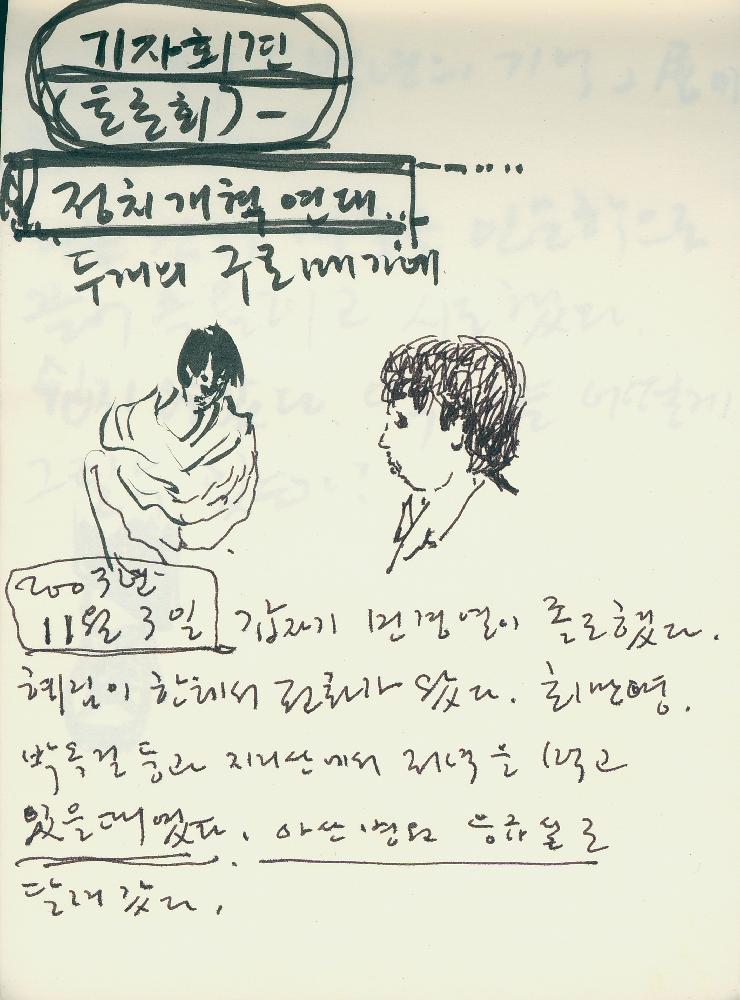 기자회견
(토론회) -
정치개혁 연대
두개의 구로
2003년
11월 3일 갑자기 민경열이 졸도했다.
혜림이 한테서 전화가 왔다. 최만영.
박옥걸 등과 지리산에서 저녁을 먹고
있을때였다. 아산병원 응급실로
달려갔다.